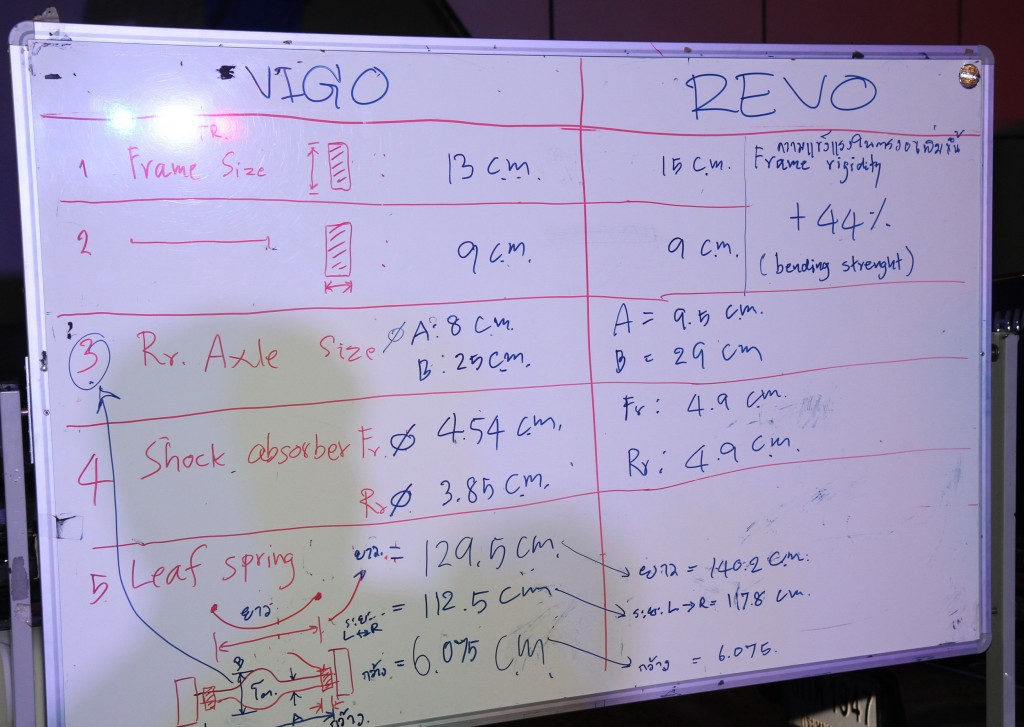 VIGO REVO
FR.
1 Frame Size : 13 cm. 15 cm.
ความแข็งแรงในการงอเพิ่มขึ้น
Frame rigidity
+ 44%
(bending strenght)
2 : 9 cm. 9 cm.
3 Rr. Axle Size ø A: 8 cm. A = 9.5 cm.
B: 25 cm. B = 29 cm
4 Shock absorber Fr. ø 4.54 cm. Fr: 4.9 cm.
Rr ø 3.85 cm. Rr: 4.9 cm.
5 Leaf spring ยาว = 129.5 cm. ยาว = 140.2 cm.
ยาว
ระยะ L↔R = 112.5 cm ระยะ L→R = 117.8 cm.
กว้าง = 6.075 cm กว้าง = 6.075.
B
A
กว้าง.